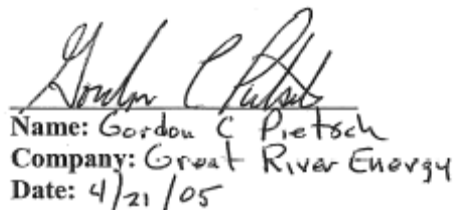 Gordon C Pietsch
Name: Gordon C Pietsch
Company: Great River Energy
Date: 4/21/05